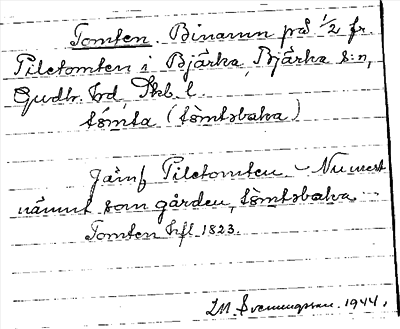 Tomten. Binamn på 1/2 fr.
Piletomten i Bjärka, Bjärka s:n,
Gudh. hd, Skb. l.
tòmta (tòmtəbaka)
Jämf Piletomten – Numest
nämnt som gården, tòmtəbaka
Tomten Hfl 1823.
I.M. Svenungsson. 1944.